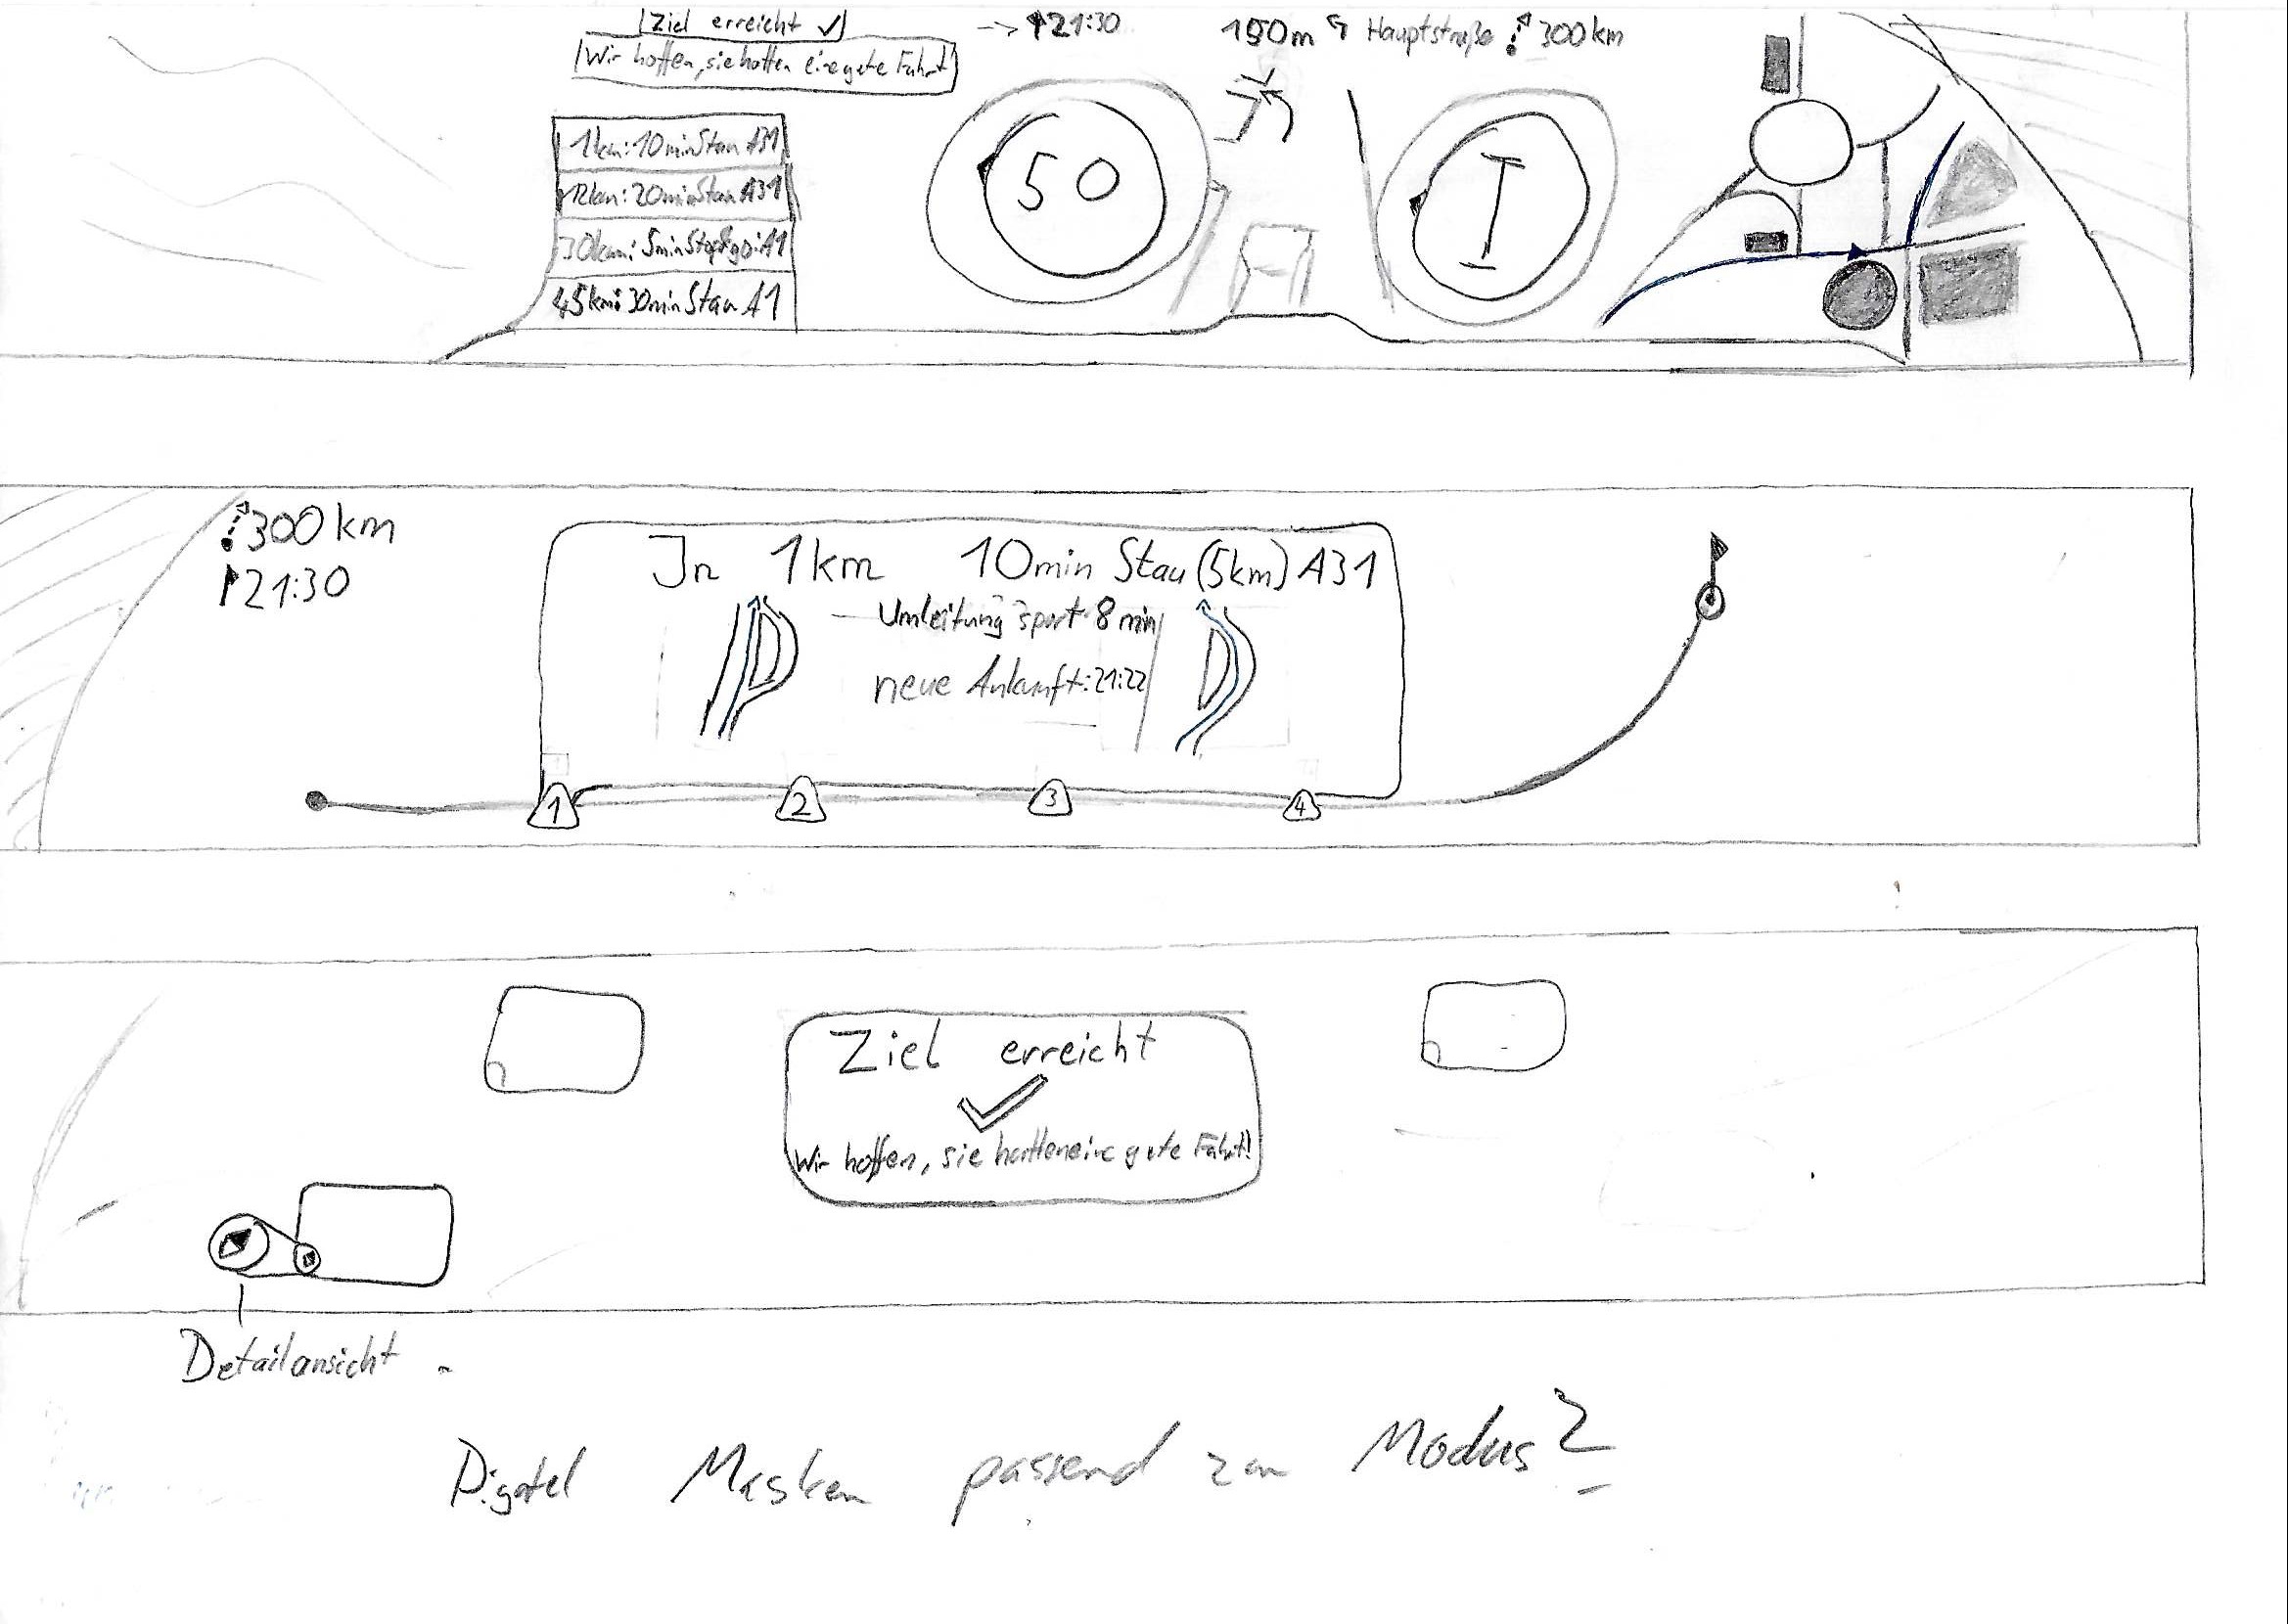 Ziel erreicht ✓
Wir hoffen, sie hatten eine gute Fahrt!
→ 21:30
150m ↰ Hauptstraße 300 km
1km: 10min Stau A31
12km: 20min Stau A31
30km: 5min Stop&go: A1
45km: 30min Stau A1
50
I
300 km
21:30
In 1km 10min Stau (5km) A31
Umleitung spart 8 min
neue Ankunft: 21:22
1 2 3 4
Ziel erreicht
Wir hoffen, sie hatten eine gute Fahrt!
Detailansicht
Masken passend zum Modus?